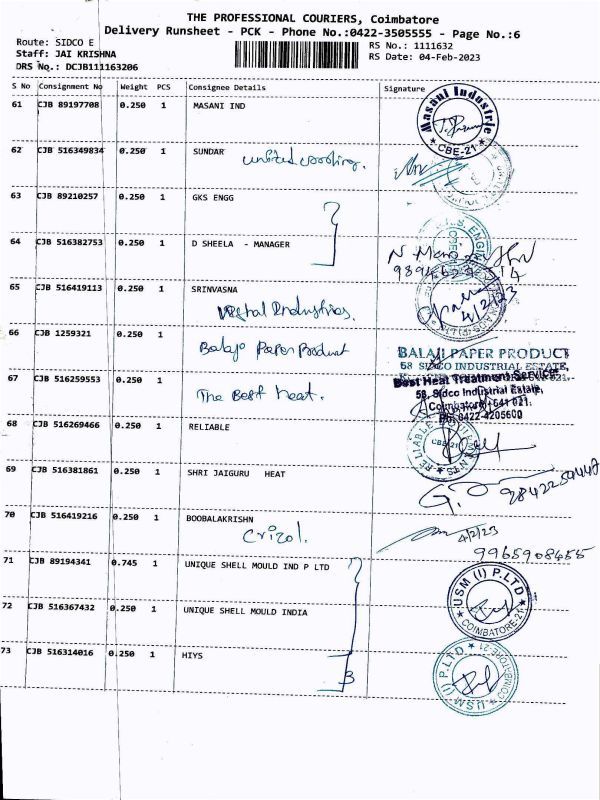 THE PROFESSIONAL COURIERS, Coimbatore
Delivery Runsheet - PCK - Phone No.:0422-3505555 - Page No.:6
Route: SIDCO E
Staff: JAI KRISHNA
DRS No.: DCJB111163206
RS No.: 1111632
RS Date: 04-Feb-2023
S No Consignment No Weight PCS Consignee Details Signature
61 CJB 89197708 0.250 1 MASANI IND
Masani Industrie
CBE-21
62 CJB 516349834 0.250 1 SUNDAR
63 CJB 89210257 0.250 1 GKS ENGG
64 CJB 516382753 0.250 1 D SHEELA - MANAGER
65 CJB 516419113 0.250 1 SRINVASNA
4/2/23
66 CJB 1259321 0.250 1
Balaji Paper Product
BALAJI PAPER PRODUCT
58 SIDCO INDUSTRIAL ESTATE,
67 CJB 516259553 0.250 1
The Best heat.
Best Heat Treatment Services
58, Sidco Industrial Estate,
Coimbatore - 641 021.
PH: 0422-4205600
68 CJB 516269466 0.250 1 RELIABLE
CBE-21
69 CJB 516381861 0.250 1 SHRI JAIGURU HEAT
70 CJB 516419216 0.250 1 BOOBALAKRISHN
Crizol.
4/2/23
9965908455
71 CJB 89194341 0.745 1 UNIQUE SHELL MOULD IND P LTD
USM (I) P.LTD
COIMBATORE-21
72 CJB 516367432 0.250 1 UNIQUE SHELL MOULD INDIA
73 CJB 516314016 0.250 1 HIYS
3
USM (I) P.LTD
COIMBATORE-21